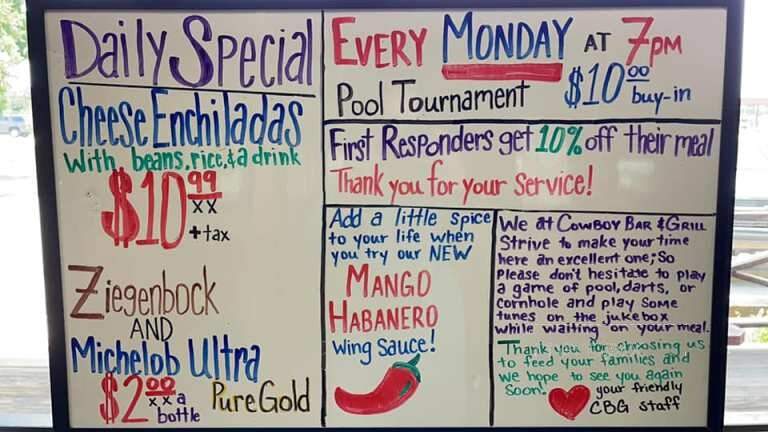 Daily Special
Cheese Enchiladas
With beans, rice, & a drink
$10.99
xx
+ tax
Ziegenbock
AND
Michelob Ultra
Pure Gold
$2.00
xx a
bottle
EVERY MONDAY AT 7PM
Pool Tournament $10.00 buy-in
First Responders get 10% off their meal
Thank you for your service!
Add a little spice
to your life when
you try our NEW
MANGO
HABANERO
Wing Sauce!
We at COWBOY BAR & GRILL
Strive to make your time
here an excellent one; So
Please don't hesitate to play
a game of pool, darts, or
Cornhole and play some
tunes on the jukebox
while waiting on your meal.
Thank you for choosing us
to feed your families and
we hope to see you again
soon.
your friendly
CBG staff